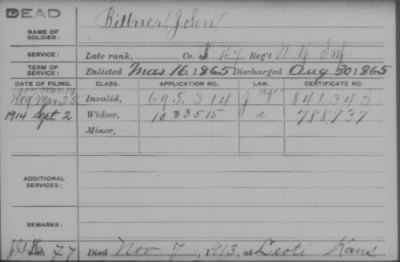 DEAD
NAME OF SOLDIER: Bittner, John
SERVICE: Late rank, Co. 47 Reg't N.Y. Inf
TERM OF SERVICE: Enlisted Mar 16, 1865 Discharged Aug 30, 1865
DATE OF FILING. CLASS. APPLICATION NO. LAW. CERTIFICATE NO.
Invalid, 695.314
1914 Sept 2 Widow, 1033515 a 788937
Minor,
ADDITIONAL SERVICES:
REMARKS:
Died Nov 7, 1913, at Leoti Kans